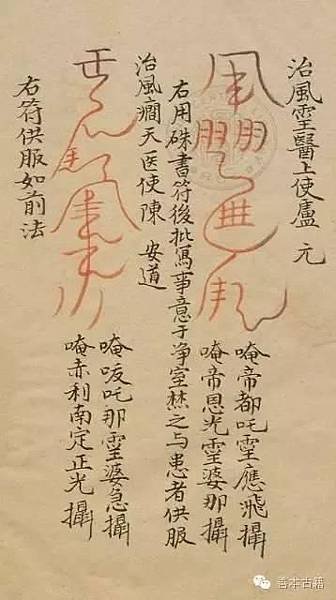 治風靈醫上使盧　元
唵帝都吒靈應飛攝
唵帝恩光靈婆那攝
右用硃書符後批寫事意于净室焚之与患者供服
治風癇天医使陳　安道
唵唆吒那靈婆急攝
唵赤利南定正光攝
右符供服如前法
善本古籍